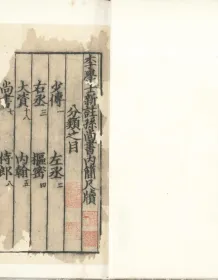 李學士新註孫尚書內簡尺牘
分類之目
少傅一
左丞二
右丞三
樞密四
大資十八
內翰五
尚書十
侍郎八